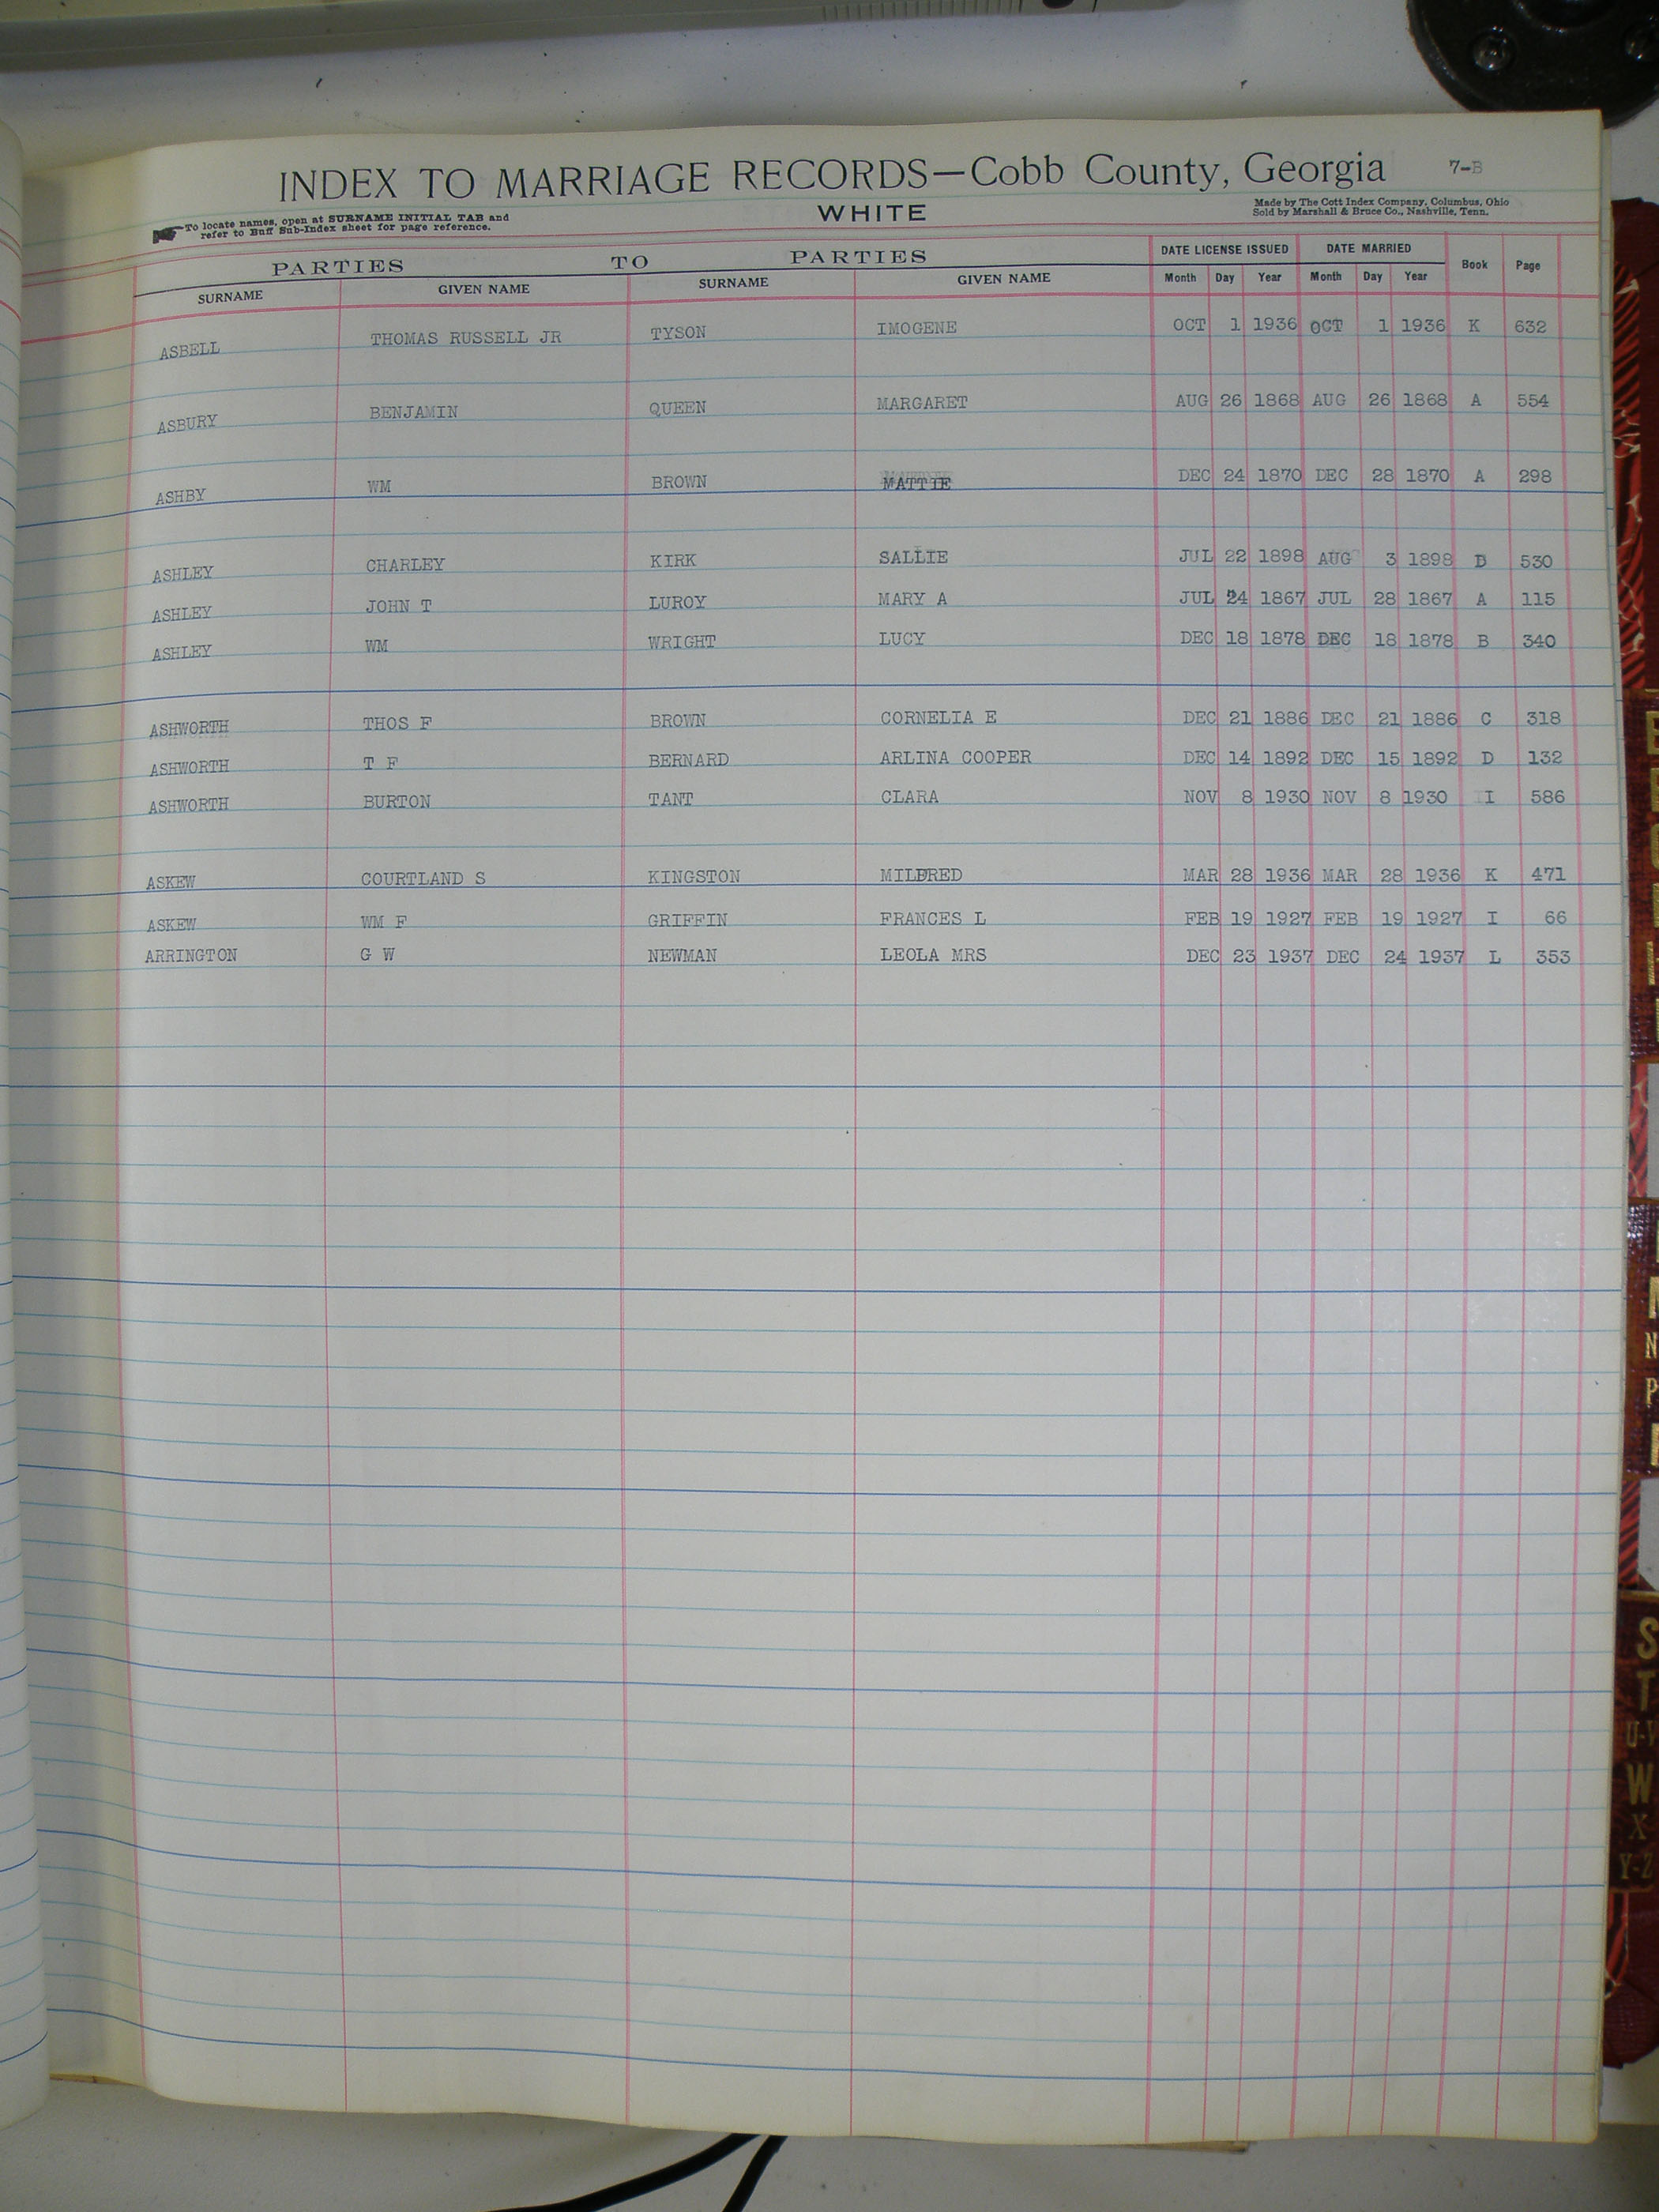 INDEX TO MARRIAGE RECORDS—Cobb County, Georgia 7-B
To locate names, open at SURNAME INITIAL TAB and
refer to Buff Sub-Index sheet for page reference.
WHITE
Made by The Cott Index Company, Columbus, Ohio
Sold by Marshall & Bruce Co., Nashville, Tenn.
PARTIES TO PARTIES DATE LICENSE ISSUED DATE MARRIED Book Page
SURNAME GIVEN NAME SURNAME GIVEN NAME Month Day Year Month Day Year
ASBELL THOMAS RUSSELL JR TYSON IMOGENE OCT 1 1936 OCT 1 1936 K 632
ASBURY BENJAMIN QUEEN MARGARET AUG 26 1868 AUG 26 1868 A 554
ASHBY WM BROWN MATTIE DEC 24 1870 DEC 28 1870 A 298
ASHLEY CHARLEY KIRK SALLIE JUL 22 1898 AUG 3 1898 D 530
ASHLEY JOHN T LUROY MARY A JUL 24 1867 JUL 28 1867 A 115
ASHLEY WM WRIGHT LUCY DEC 18 1878 DEC 18 1878 B 340
ASHWORTH THOS F BROWN CORNELIA E DEC 21 1886 DEC 21 1886 C 318
ASHWORTH T F BERNARD ARLINA COOPER DEC 14 1892 DEC 15 1892 D 132
ASHWORTH BURTON TANT CLARA NOV 8 1930 NOV 8 1930 I 586
ASKEW COURTLAND S KINGSTON MILDRED MAR 28 1936 MAR 28 1936 K 471
ASKEW WM F GRIFFIN FRANCES L FEB 19 1927 FEB 19 1927 I 66
ARRINGTON G W NEWMAN LEOLA MRS DEC 23 1937 DEC 24 1937 L 353
N
P
S
T
U-V
W
X
Y-Z